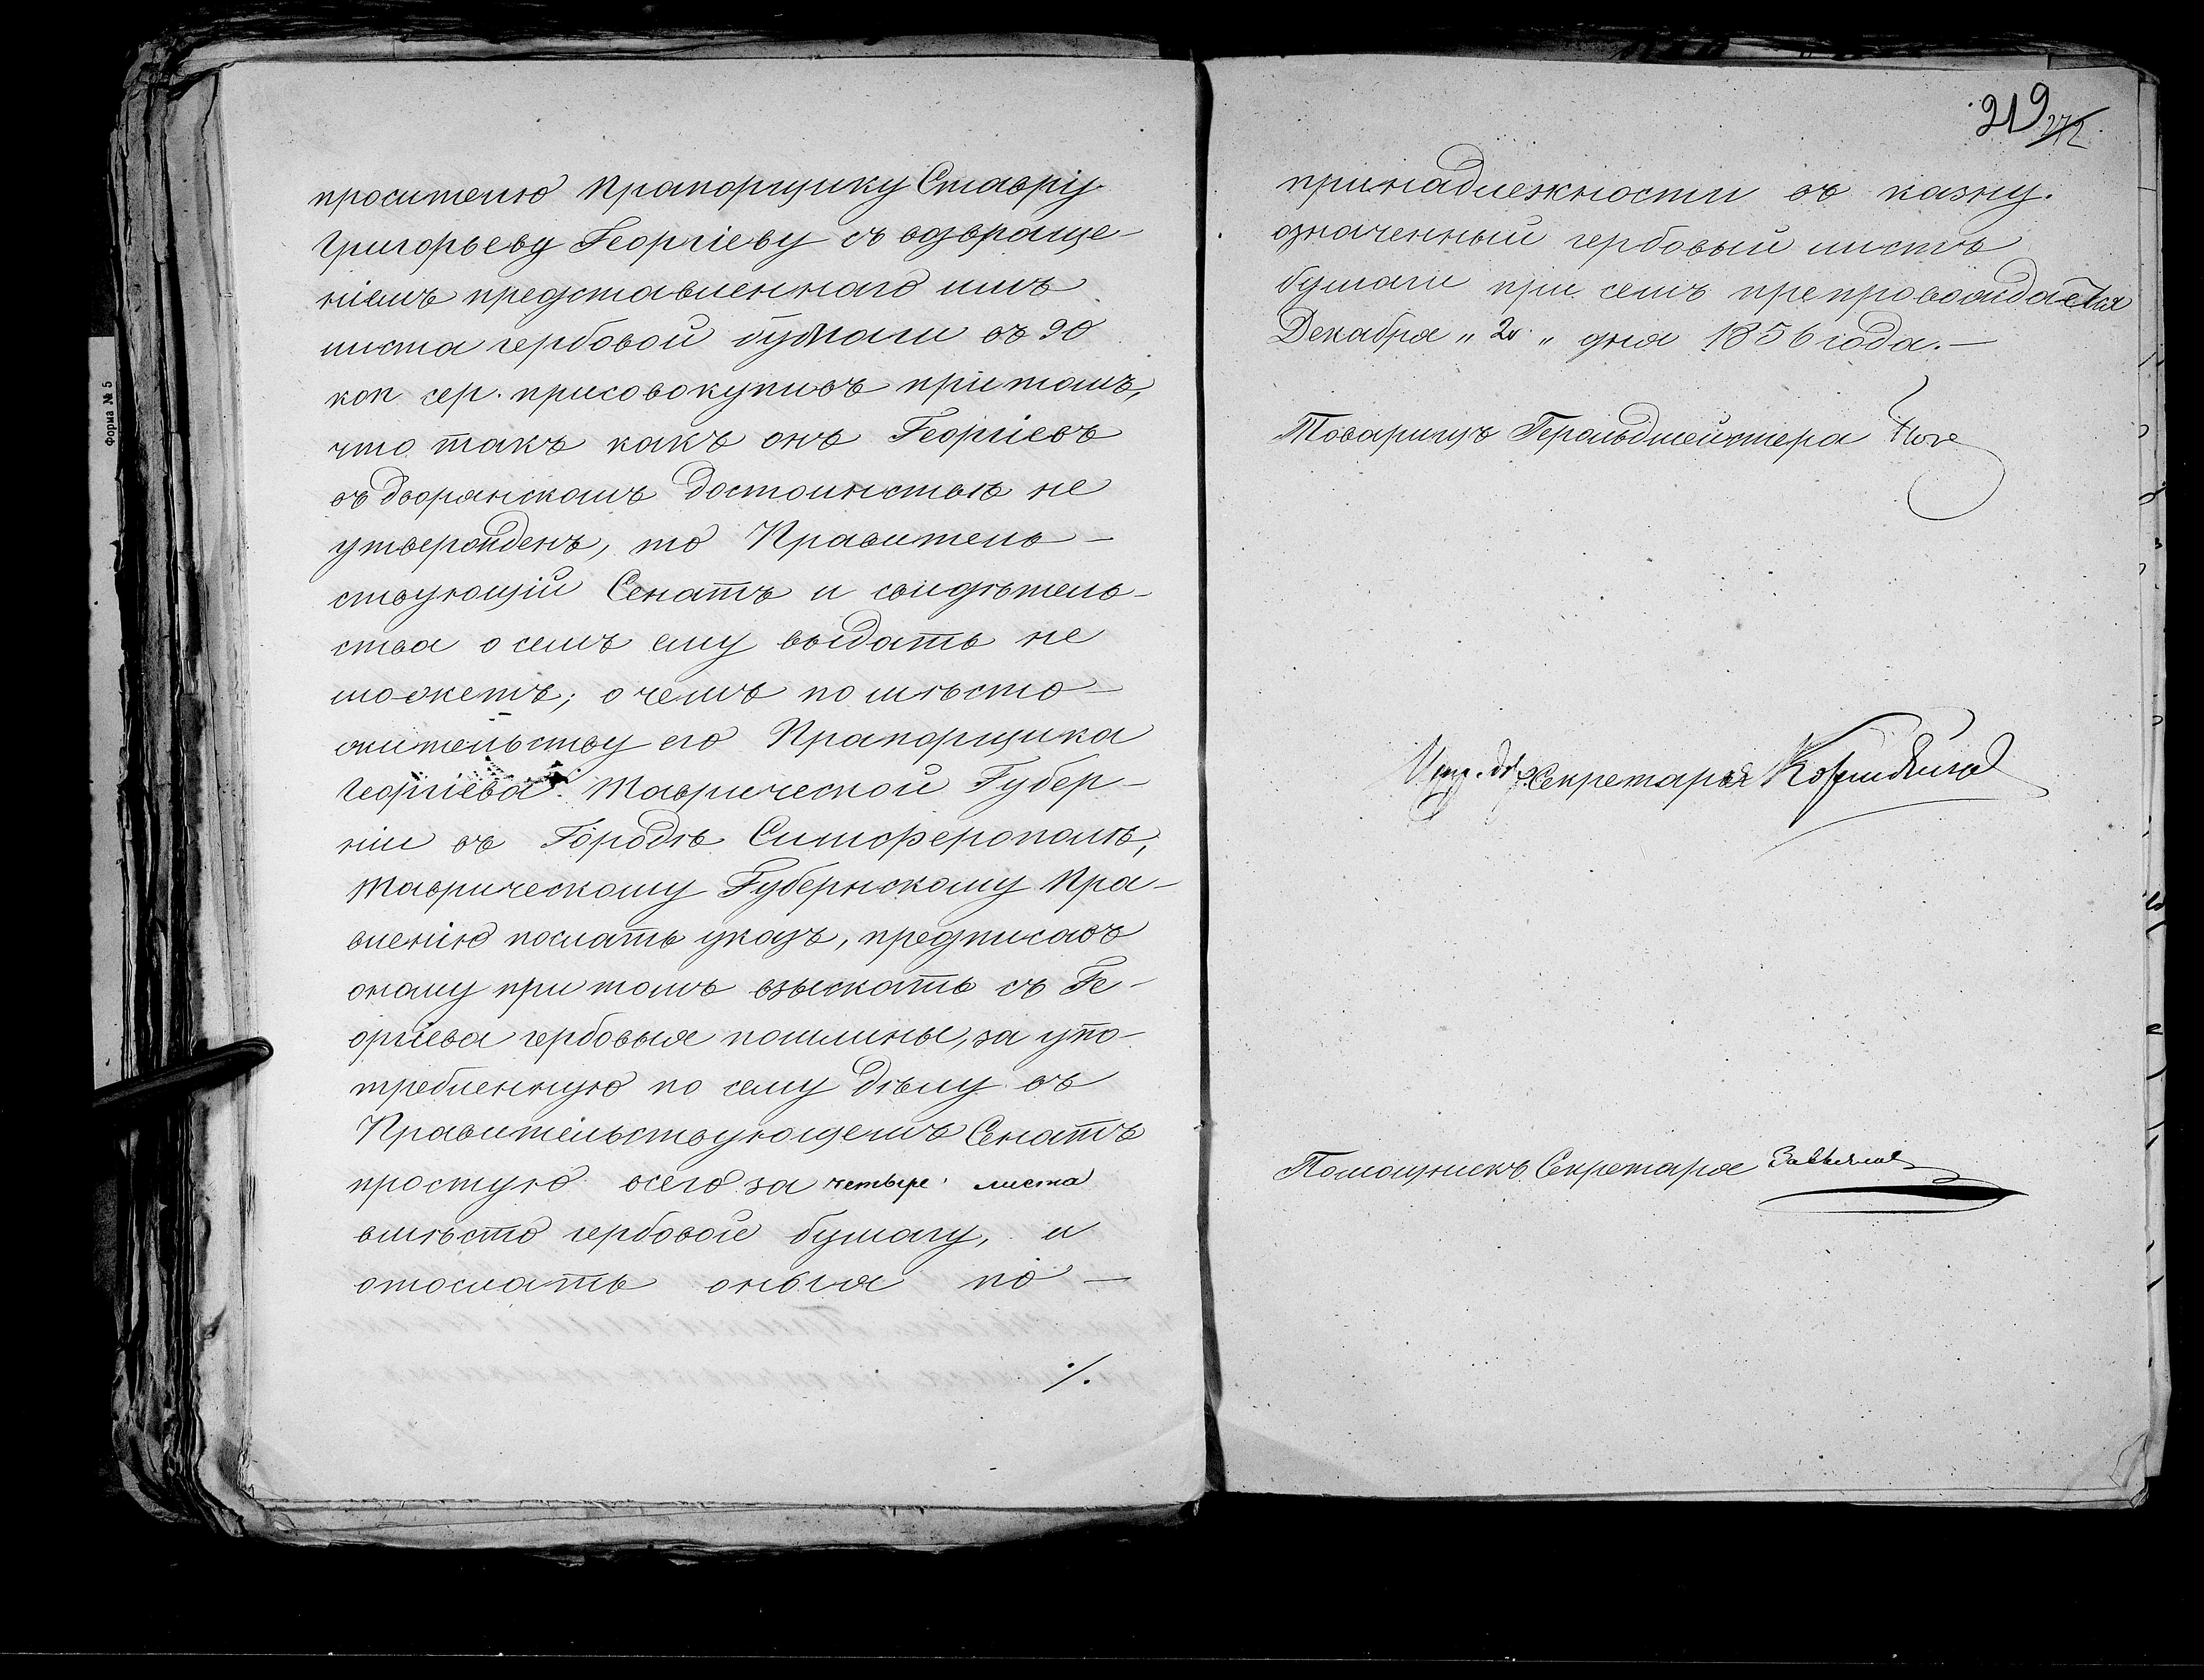 просителю Прапорщику Ставрiу
Григорьеву Георгiеву съ возвраще-
нiемъ представленнаго имъ
листа гербовой бумаги въ 90
коп сер. присовокупивъ притомъ,
что такъ какъ онъ Георгiевъ
въ дворянскомъ достоинствѣ не
утвержденъ, то Правитель-
ствующiй Сенатъ и свидѣтель-
ства о семъ ему выдать не
можетъ; о чемъ по мѣсто-
жительству его Прапорщика
Георгiева Таврической Губер-
нiи въ Городѣ Симферополѣ,
Таврическому Губернскому Пра-
вленiю послать указъ, предписавъ
оному притомъ взыскать съ Ге-
оргiева гербовыя пошлины, за упо-
требленную по сему дѣлу въ
Правительствующемъ Сенатѣ
простую всего за четыре листа
вмѣсто гербовой бумагу, и
отослать оныя по-
./.
219 272
принадлежности въ казну.
означенный гербовый листъ
бумаги при семъ препровождается
Декабря "20" дня 1856 года.-
Товарищъ Герольдмейстера
Испр. дѣл. Секретаря
Помощникъ Секретаря
Форма № 5